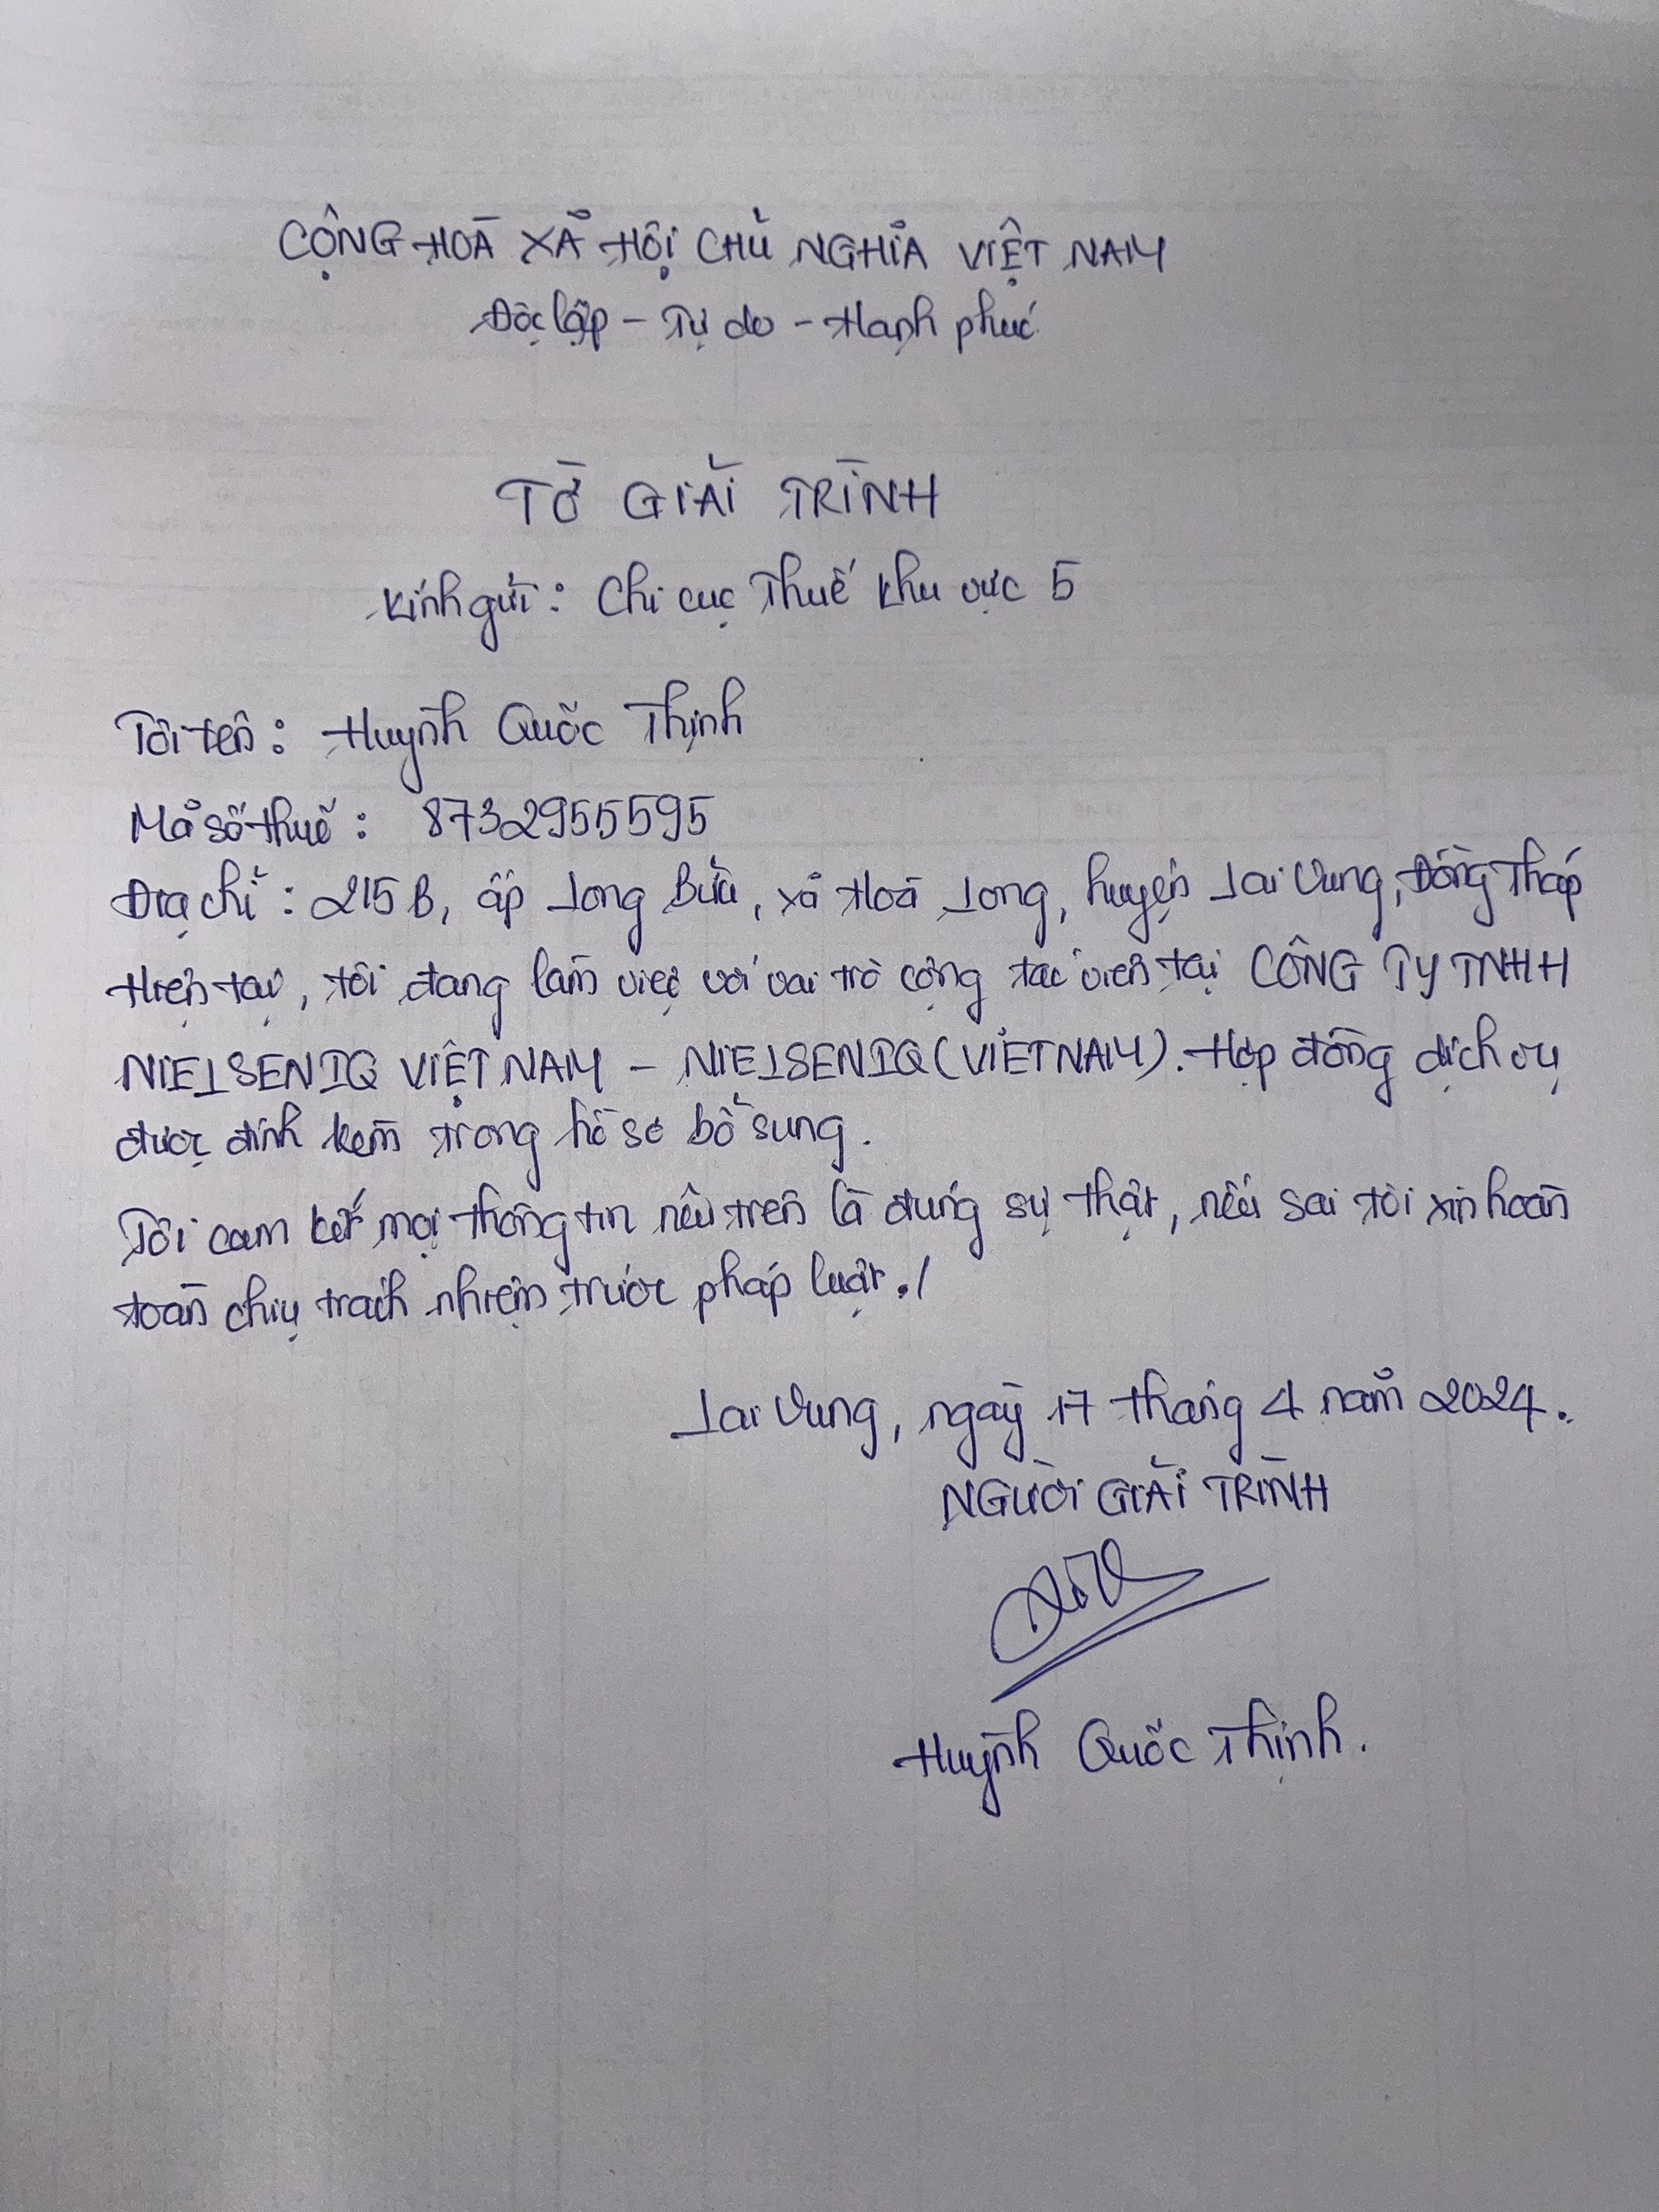 CỘNG HOÀ XÃ HỘI CHỦ NGHĨA VIỆT NAM
Độc lập - Tự do - Hạnh phúc
TỜ GIẢI TRÌNH
Kính gửi: Chi cục Thuế khu vực 5
Tôi tên: Huỳnh Quốc Thịnh
Mã số thuế: 8732955595
Địa chỉ: 215B, ấp Long Bửu, xã Hoà Long, huyện Lai Vung, Đồng Tháp
Hiện tại, tôi đang làm việc với vai trò cộng tác viên tại CÔNG TY TNHH
NIELSENIQ VIỆT NAM - NIELSENIQ (VIETNAM). Hợp đồng dịch vụ
được đính kèm trong hồ sơ bổ sung.
Tôi cam kết mọi thông tin nêu trên là đúng sự thật, nếu sai tôi xin hoàn
toàn chịu trách nhiệm trước pháp luật./
Lai Vung, ngày 17 tháng 4 năm 2024.
NGƯỜI GIẢI TRÌNH
Huỳnh Quốc Thịnh.